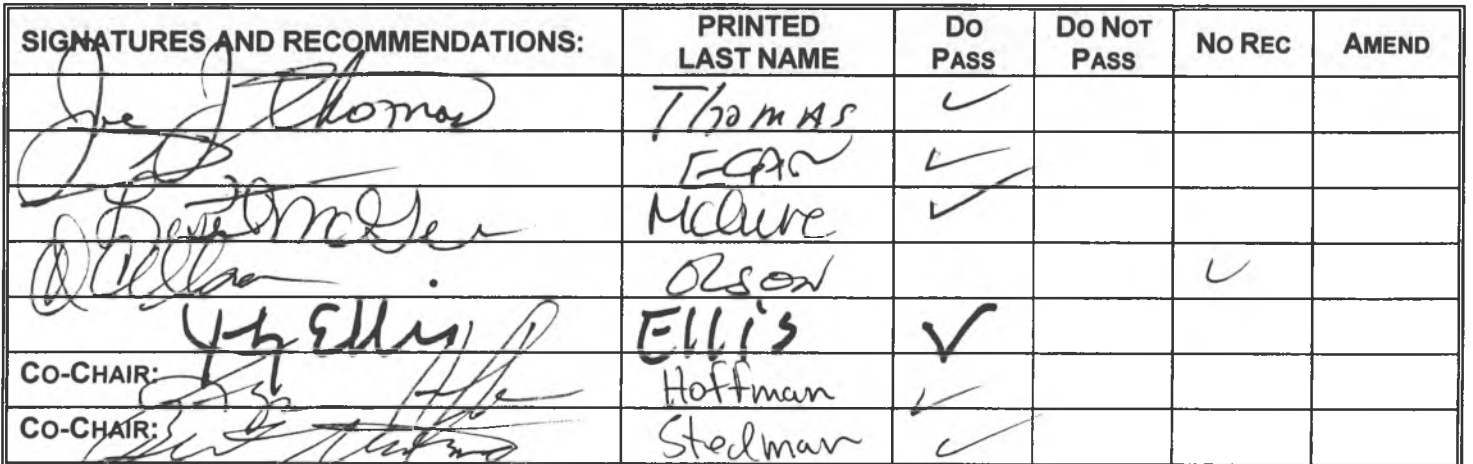 SIGNATURES AND RECOMMENDATIONS: PRINTED LAST NAME DO PASS DO NOT PASS NO REC AMEND
Joe J Thomas Thomas ✓
EGAN ✓
McGuire ✓
Olson OLSON ✓
Ellis Ellis ✓
CO-CHAIR: Hoffman ✓
CO-CHAIR: Stedman ✓